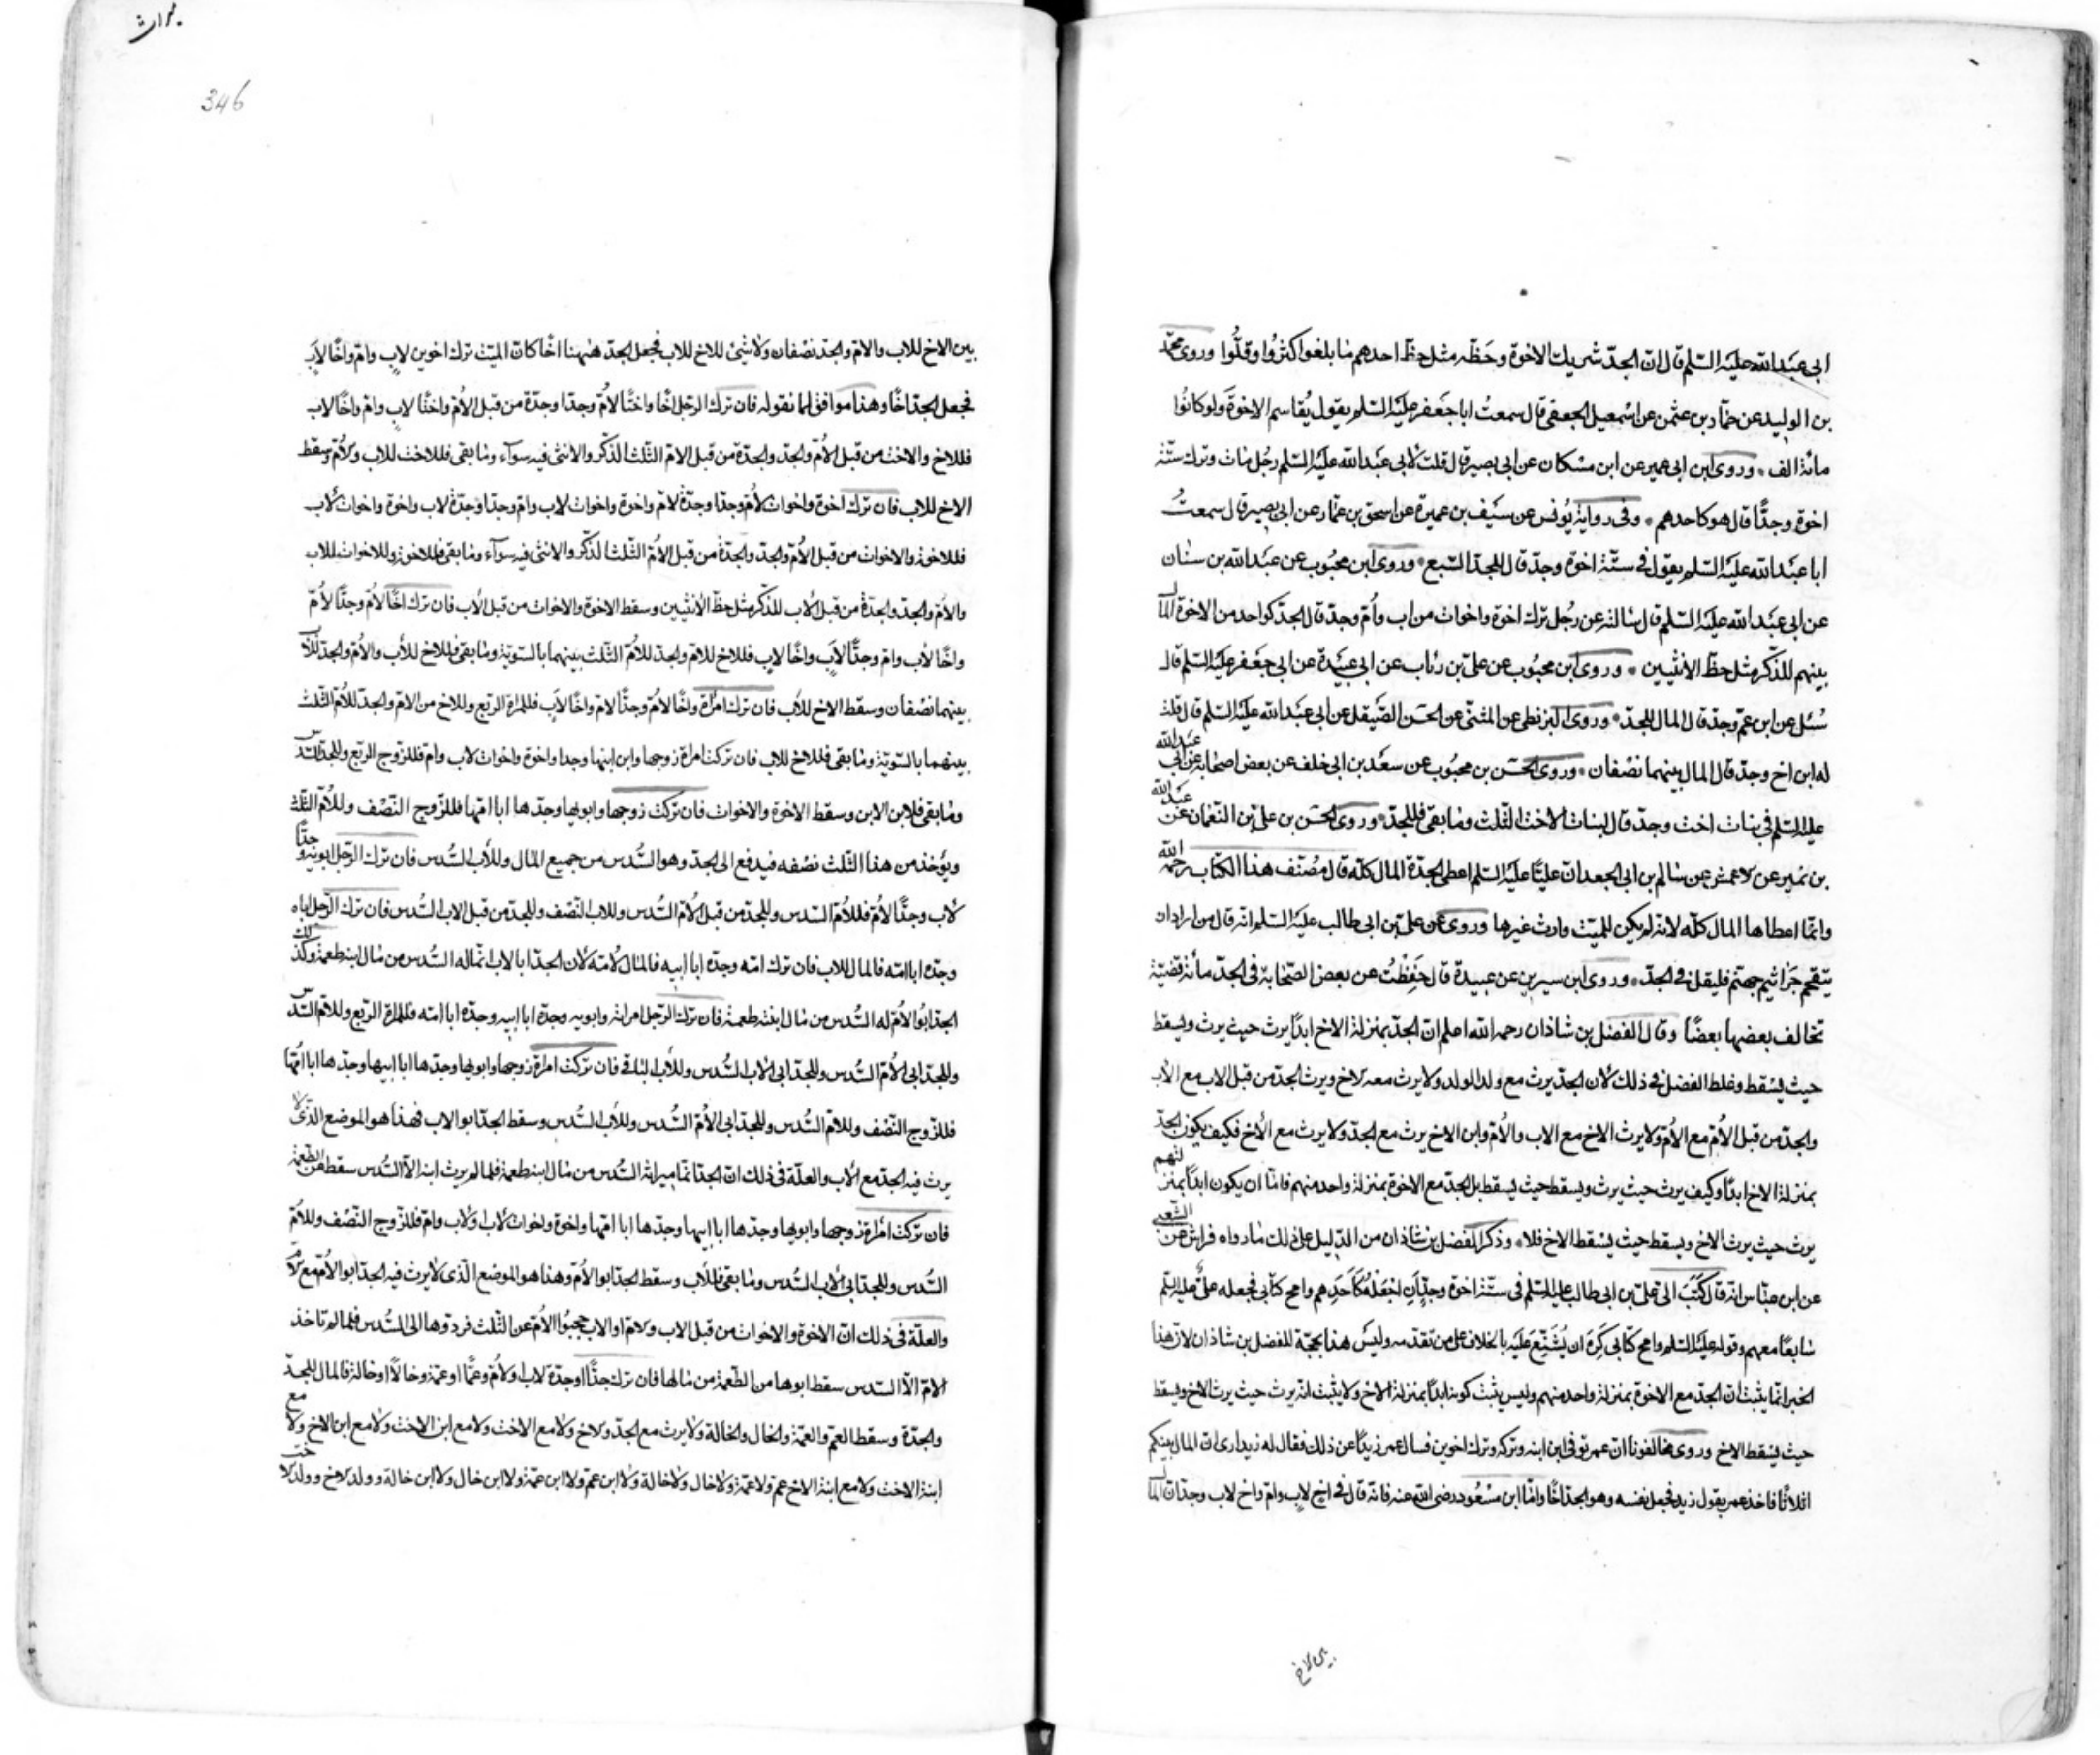 ابى عبد الله عليه السّلم قال انّ الجدّ شريك الاخوة وحظّه مثل حظّ احدهم ما بلغوا كثرُوا وقلّوا وروى محمّد
بن الوليد عن حمّاد بن عثمن عن اسمعيل الجعفى قال سمعتُ ابا جعفر عليه السّلم يقول يُقاسم الاخوة ولو كانوُا
مائة الف وروى ابن ابى عمير عن ابن مسكان عن ابى بصير قال قلت لابى عبد الله عليه السّلم رجُل مات وترك ستّة
اخوة وجدًّا قال هو كاحدهم وفى رواية يُونس عن سيف بن عميرة عن اسحق بن عمّار عن ابى بصير قال سمعتُ
ابا عبد الله عليه السّلم يقول فى ستّة اخوة وجدّ قال للجدّ السّبع وروى ابن محبُوب عن عبد الله بن سنان
عن ابى عبد الله عليه السّلم قال سالته عن رجُل ترك اخوة واخوات من اب وأُم وجدّ قال الجدّ كواحد من الاخوة المال
بينهم للذّكر مثل حظّ الانثيين وروى ابن محبوب عن علىّ بن رئاب عن ابى عبيدة عن ابى جعفر عليه السّلم قال
سُئل عن ابن عمّ وجدّ قال المال للجدّ وروى البزنطى عن المثنّى عن الحسن الصّيقل عن ابى عبد الله عليه السّلم قال قلت
له ابن اخ وجدّ قال المال بينهما نصفان وروى الحسَن بن محبُوب عن سعد بن ابى خلف عن بعض اصحابه عن ابى عبد الله
عليه السّلم فى بنات اخت وجدّ قال لبنات الاخت الثّلث وما بقى فللجدّ وروى الحسَن بن علىّ بن النّعمان عن عبد الله
بن نمير عن الاعمش عن سالم بن ابى الجعد انّ عليًّا عليه السّلم اعطى الجدّة المال كلّه قال مُصنّف هذا الكتاب رحمه الله
وانّما اعطاها المال كلّه لانه لم يكن للميّت وارث غيرها وروى عن علىّ بن ابى طالب عليه السّلم انه قال من اراد ان
يتقحّم جَرَاثيم جهنّم فليقل فى الجدّ وروى ابن سيرين عن عبيدة قال حَفِظْتُ عن بعض الصّحابة فى الجدّ مائة قضيّة
تخالف بعضها بعضًا وقال الفضل بن شاذان رحمه الله اعلم انّ الجدّ بمنزلة الاخ ابدًا يرث حيث يرث ويسقط
حيث يسقط وغلط الفضل فى ذلك لان الجدّ يرث مع ولد الولد ولا يرث معه الاخ ويرث الجدّ من قبل الاب مع الاب
والجدّ من قبل الأمّ مع الأمّ ولا يرث الاخ مع الاب والأمّ وابن الاخ يرث مع الجدّ ولا يرث مع الأخ فكيف يكون الجدّ
بمنزلة الاخ ابدًا وكيف يرث حيث يرث ويسقط حيث يسقط بل الجدّ مع الاخوة بمنزلة واحد منهم فامّا ان يكون ابدًا بمنزلتهم
يرث حيث يرث الاخ ويسقط حيث يسقط الاخ فلا وذكر الفضل بن شاذان من الدّليل على ذلك ما رواه فراش عن الشّعبى
عن ابن عبّاس انه قال كَتَبَ الىّ علىّ بن ابى طالب عليه السّلم فى ستّة اخوة وجدٍّ ان اجْعَلْهُ كَاَحَدِهم وامح كتابى فجعله علىّ عليه السّلم
سابعًا معهم وقوله عليه السّلم وامح كتابى كَرِهَ ان يُشَنَّع عليه بالخلاف على من تقدّمه وليس هذا بحجّة للفضل بن شاذان لانّ هذا
الخبر انّما يثبت انّ الجدّ مع الاخوة بمنزلة واحد منهم وليس يثبت كونه ابدًا بمنزلة الاخ ولا يثبت انّه يرث حيث يرث الاخ ويسقط
حيث يسقط الاخ وروى مخالفونا انّ عمر توفى ابن ابنه وتركه وترك اخوين فسال عمر زيدًا عن ذلك فقال له زيد ارى انّ المال بينكم
اثلاثًا فاخذ عمر بقول زيد فجعل نفسه وهو الجدّ اخًا وامّا ابن مسعُود رضى الله عنه فانه قال فى اخٍ لابٍ وامّ واخ لاب وجدّ انّ المال
بين الاخ
بين الاخ للاب والامّ والجدّ نصفان ولا شئ للاخ للاب فجعل الجدّ هيهنا اخًا كانّ الميّت ترك اخوين لابٍ وامّ واخًا لابٍ
فجعل الجدّ اخًا وهذا موافق لما نقوله فان ترك الرّجل اخًا واختًا لامّ وجدّا وجدّة من قبل الأمّ واختًا لابٍ وامّ واخًا لاب
فللاخ والاخت من قبل الأمّ والجدّ والجدّة من قبل الامّ الثّلث الذّكر والانثى فيه سوآء وما بقى فللاخت للاب والأمّ وسقط
الاخ للاب فان ترك اخوة واخوات لامّ وجدّا وجدّة لامّ واخوة واخوات لاب وامّ وجدّا وجدّة لاب واخوة واخوات لاب
فللاخوة والاخوات من قبل الأمّ والجدّ والجدّة من قبل الأمّ الثّلث الذّكر والانثى فيه سوآء وما بقى فللاخوة وللاخوات للاب
والامّ والجدّ والجدّة من قبل الاب للذّكر مثل حظّ الانثيين وسقط الاخوة والاخوات من قبل الأب فان ترك اخًا لأمّ وجدًّا لأمّ
واخًا لاب وامّ وجدًّا لابٍ واخًا لابٍ فللاخ للامّ والجدّ للأمّ الثّلث بينهما بالسّويّة وما بقى فللاخ للأب والأمّ والجدّ للأب
بينهما نصفان وسقط الاخ للأب فان ترك امرأة واخًا لامّ وجدًّا لامّ واخًا لابٍ فللمراة الربع وللاخ من الامّ والجدّ للأمّ الثّلث
بينهما بالسّويّة وما بقى فللاخ للاب فان تركت امراة زوجها وابن ابنها وجدا واخوة واخوات لاب وامّ فللزّوج الربع وللجدّ السّدس
وما بقى فلابن الابن وسقط الاخوة والاخوات فان تركت زوجها وابويها وجدّها ابا امّها فللزّوج النّصف وللأمّ الثّلث
ويؤخذ من هذا الثّلث نصفه فيدفع الى الجدّ وهو السّدس من جميع المال وللأب السّدس فان ترك الرّجل ابويه وجدًّا
لاب وجدًّا لأمّ فللأمّ السّدس وللجدّ من قبل الأمّ السّدس وللاب النّصف وللجدّ من قبل الاب السّدس فان ترك الرّجل اباه
وجدّه ابا امّه فالمال للاب فان ترك امّه وجدّه ابا ابيه فالمال لأمّه لأن الجدّ ابا الاب انّما له السّدس من مال ابنه طعمة وكذلك
الجدّ ابُو الأمّ له السّدس من مال ابنته طعمة فان ترك الرّجل امراته وابويه وجدّه ابا ابيه وجدّه ابا امّه فللمراة الربع وللامّ السّدس
وللجدّ ابى الأمّ السّدس وللجدّ ابى الأب السّدس وللأب الباقى فان تركت امراة زوجها وابويها وجدّها ابا ابيها وجدّها ابا امّها
فللزّوج النّصف وللامّ السّدس وللجدّ ابى الأمّ السّدس وللأب السّدس وسقط الجدّ ابو الاب فهذا هو الموضع الذّى لا
يرث فيه الجدّ مع الأب والعلّة فى ذلك انّ الجدّ انّما ميراثه السّدس من مال ابنه طعمة فلمّا لم يرث ابنه الاّ السّدس سقط من الطّعمة
فان تركت امراة زوجها وابويها وجدّها ابا ابيها وجدّها ابا امّها واخوة واخوات لاب ولاب وامّ فللزّوج النّصف وللأمّ
السّدس وللجدّ ابى الأب السّدس وما بقى فللأب وسقط الجدّ ابو الأمّ وهذا هو الموضع الّذى لا يرث فيه الجدّ ابو الأمّ مع الأمّ
والعلّة فى ذلك انّ الاخوة والاخوات من قبل الاب والامّ او الاب حجبُوا الأمّ عن الثّلث فردّوها الى السّدس فلمّا لم تاخذ
الامّ الاّ السّدس سقط ابوها من الطّعمة من مالها فان ترك جدًّا او جدّة لاب او لأمّ وعمًّا او عمّة وخالاً او خالة فالمال للجدّ
والجدّة وسقط العمّ والعمّة والخال والخالة ولا يرث مع الجدّ ولا اخ ولا مع الاخت ولا مع ابن الاخت ولا مع ابن الاخ ولا مع
ابنة الاخت ولا مع ابنة الاخ عمّ ولا عمّة ولا خال ولا خالة ولا ابن عمّ ولا ابن عمّة ولا ابن خال ولا ابن خالة وولد الاخ وولد الاخت
346